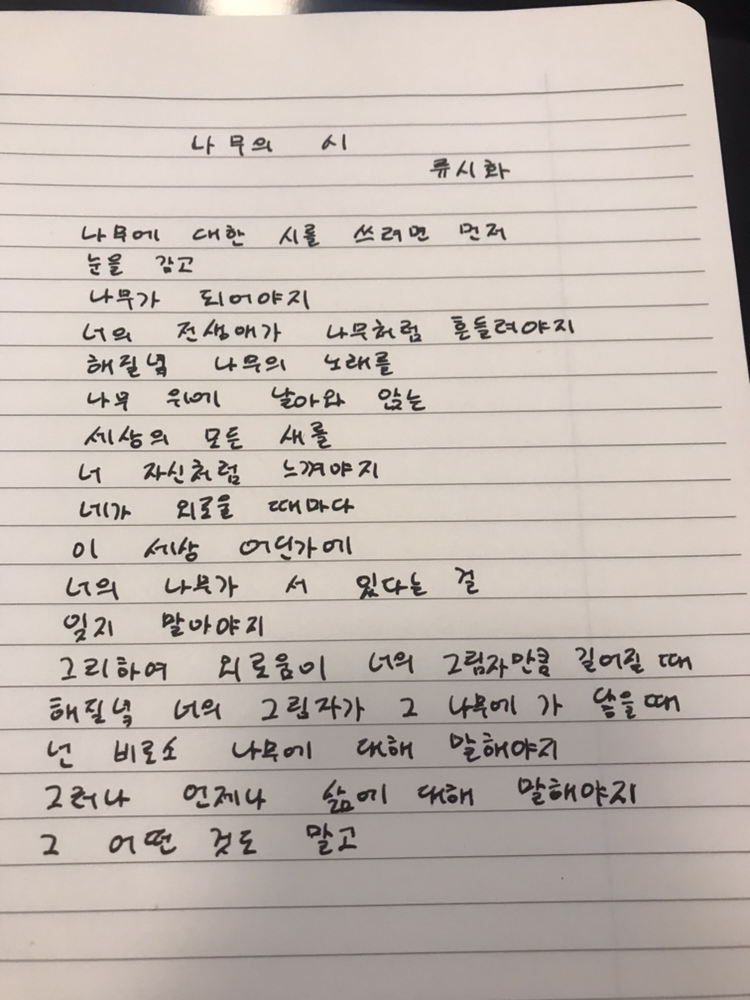 나무의 시
류시화
나무에 대한 시를 쓰려면 먼저
눈을 감고
나무가 되어야지
너의 전생애가 나무처럼 흔들려야지
해질녘 나무의 노래를
나무 위에 날아와 앉는
세상의 모든 새를
너 자신처럼 느껴야지
네가 외로울 때마다
이 세상 어딘가에
너의 나무가 서 있다는 걸
잊지 말아야지
그리하여 외로움이 너의 그림자만큼 길어질 때
해질녘 너의 그림자가 그 나무에 가 닿을 때
넌 비로소 나무에 대해 말해야지
그러나 언제나 삶에 대해 말해야지
그 어떤 것도 말고